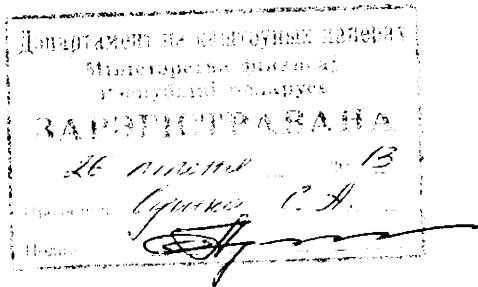 Дэпартамент па каштоўных паперах
Міністэрства фінансаў
Рэспублікі Беларусь
ЗАРЭГІСТРАВАНА
26 ліпеня 2013
С. А.
Подпіс